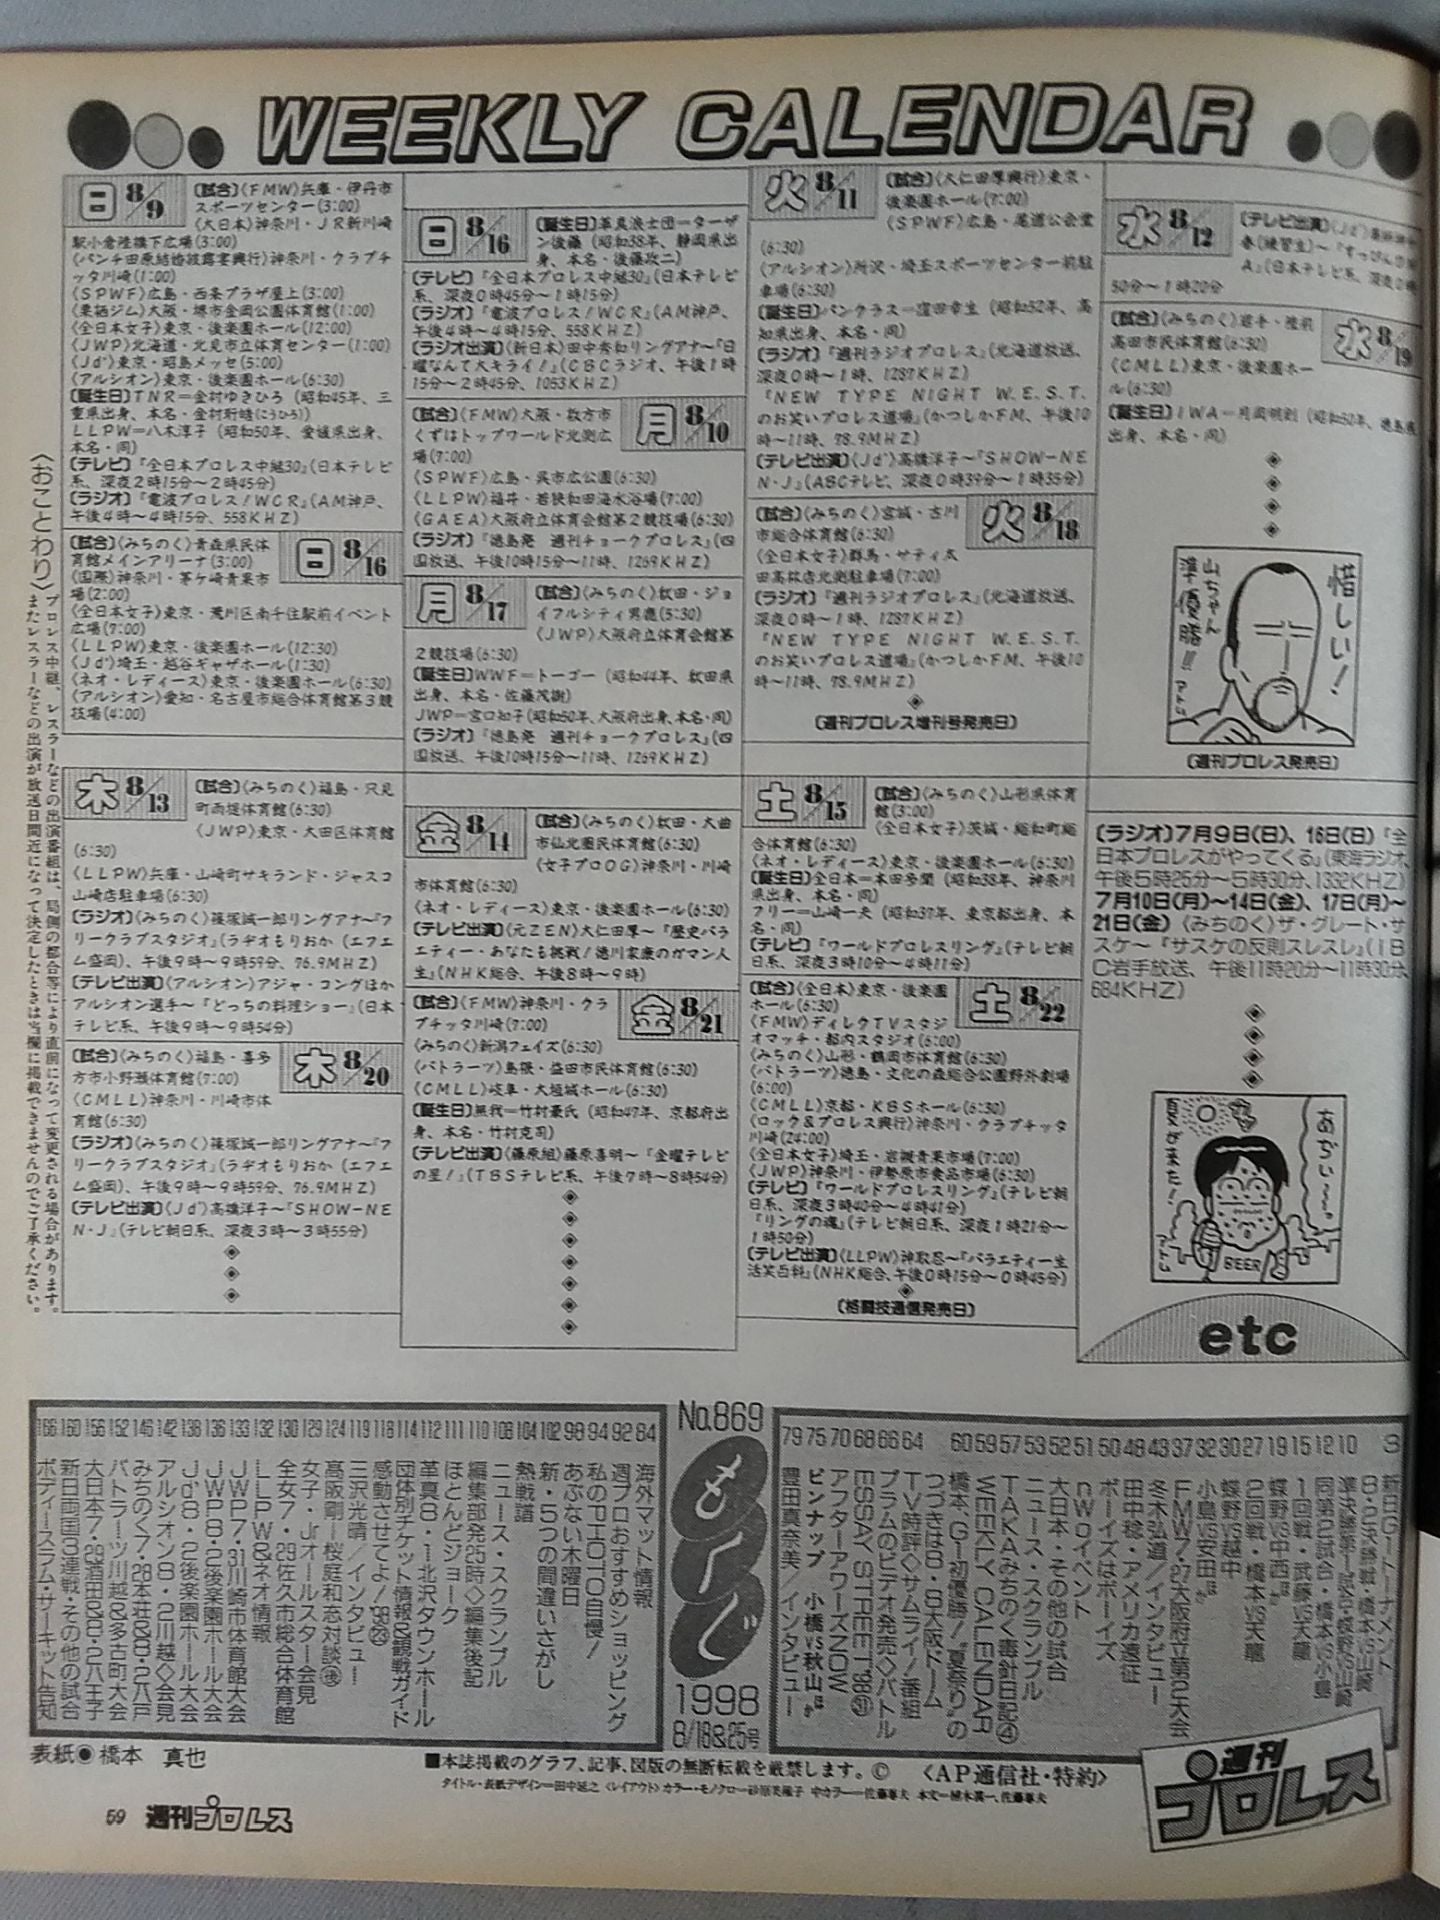 WEEKLY CALENDAR
日 8/9
〔試合〕〈FMW〉兵庫・伊丹市
スポーツセンター(3:00)
〈大日本〉神奈川・JR新川崎
駅小倉陸橋下広場(3:00)
〈パンチ田原結婚披露宴興行〉神奈川・クラブチ
ッタ川崎(1:00)
〈SPWF〉広島・西条プラザ屋上(3:00)
〈栗栖ジム〉大阪・堺市金岡公園体育館(1:00)
〈全日本女子〉東京・後楽園ホール(12:00)
〈JWP〉北海道・北見市立体育センター(1:00)
〈Jd'〉東京・昭島メッセ(5:00)
〈アルシオン〉東京・後楽園ホール(6:30)
〔誕生日〕TNR=金村ゆきひろ(昭和45年、三
重県出身、本名・金村珩皓(こうひろ))
LLPW=八木淳子(昭和50年、愛媛県出身、
本名・同)
〔テレビ〕『全日本プロレス中継30』(日本テレビ
系、深夜2時15分〜2時45分)
〔ラジオ〕『電波プロレス!WCR』(AM神戸、
午後4時〜4時15分、558KHZ)
日 8/16
〔試合〕〈みちのく〉青森県民体
育館メインアリーナ(3:00)
〈国際〉神奈川・茅ケ崎青果市
場(2:00)
〈全日本女子〉東京・荒川区南千住駅前イベント
広場(7:00)
〈LLPW〉東京・後楽園ホール(12:30)
〈Jd'〉埼玉・越谷ギャザホール(1:30)
〈ネオ・レディース〉東京・後楽園ホール(6:30)
〈アルシオン〉愛知・名古屋市総合体育館第3競
技場(4:00)
日 8/16
〔誕生日〕革真浪士団=ターザ
ン後藤(昭和38年、静岡県出
身、本名・後藤政二)
〔テレビ〕『全日本プロレス中継30』(日本テレビ
系、深夜0時45分〜1時15分)
〔ラジオ〕『電波プロレス!WCR』(AM神戸、
午後4時〜4時15分、558KHZ)
〔ラジオ出演〕〈新日本〉田中秀和リングアナ〜『日
曜なんて大キライ!』(CBCラジオ、午後1時
15分〜2時45分、1053KHZ)
月 8/10
〔試合〕〈FMW〉大阪・枚方市
くずはトップワールド北側広
場(7:00)
〈SPWF〉広島・呉市広公園(6:30)
〈LLPW〉福井・若狭和田海水浴場(7:00)
〈GAEA〉大阪府立体育会館第2競技場(6:30)
〔ラジオ〕『徳島発 週刊チョークプロレス』(四
国放送、午後10時15分〜11時、1269KHZ)
月 8/17
〔試合〕〈みちのく〉秋田・ジョ
イフルシティ男鹿(5:30)
〈JWP〉大阪府立体育会館第
2競技場(6:30)
〔誕生日〕WWF=トーゴー(昭和44年、秋田県
出身、本名・佐藤茂樹)
JWP=宮口知子(昭和50年、大阪府出身、本名・同)
〔ラジオ〕『徳島発 週刊チョークプロレス』(四
国放送、午後10時15分〜11時、1269KHZ)
火 8/11
〔試合〕〈大仁田厚興行〉東京・
後楽園ホール(7:00)
〈SPWF〉広島・尾道公会堂
(6:30)
〈アルシオン〉所沢・埼玉スポーツセンター前駐
車場(6:30)
〔誕生日〕パンクラス=窪田幸生(昭和52年、高
知県出身、本名・同)
〔ラジオ〕『週刊ラジオプロレス』(北海道放送、
深夜0時〜1時、1287KHZ)
『NEW TYPE NIGHT W.E.S.T.
のお笑いプロレス道場』(かつしかFM、午後10
時〜11時、78.9MHZ)
〔テレビ出演〕〈Jd'〉高橋洋子〜『SHOW-NE
N・J』(ABCテレビ、深夜0時39分〜1時35分)
火 8/18
〔試合〕〈みちのく〉宮城・古川
市総合体育館(6:30)
〈全日本女子〉群馬・サティ太
田高林店北側駐車場(7:00)
〔ラジオ〕『週刊ラジオプロレス』(北海道放送、
深夜0時〜1時、1287KHZ)
『NEW TYPE NIGHT W.E.S.T.
のお笑いプロレス道場』(かつしかFM、午後10
時〜11時、78.9MHZ)
〔週刊プロレス増刊号発売日〕
水 8/12
〔テレビ出演〕〈Jd'〉
春(練習生)〜『すっぴん
A』(日本テレビ系、深夜0時
50分〜1時20分
水 8/19
〔試合〕〈みちのく〉岩手・陸前
高田市民体育館(6:30)
〈CMLL〉東京・後楽園ホー
ル(6:30)
〔誕生日〕IWA=月岡明則(昭和50年、徳島県
出身、本名・同)
惜しい!
山ちゃん
準優勝!!!
アトム
〔週刊プロレス発売日〕
木 8/13
〔試合〕〈みちのく〉福島・只見
町両堤体育館(6:30)
〈JWP〉東京・大田区体育館
(6:30)
〈LLPW〉兵庫・山崎町サキランド・ジャスコ
山崎店駐車場(6:30)
〔ラジオ〕〈みちのく〉篠塚誠一郎リングアナ〜『フ
リークラブスタジオ』(ラヂオもりおか(エフエ
ム盛岡)、午後9時〜9時59分、76.9MHZ)
〔テレビ出演〕〈アルシオン〉アジャ・コングほか
アルシオン選手〜『どっちの料理ショー』(日本
テレビ系、午後9時〜9時54分)
木 8/20
〔試合〕〈みちのく〉福島・喜多
方市小野瀬体育館(7:00)
〈CMLL〉神奈川・川崎市体
育館(6:30)
〔ラジオ〕〈みちのく〉篠塚誠一郎リングアナ〜『フ
リークラブスタジオ』(ラヂオもりおか(エフエ
ム盛岡)、午後9時〜9時59分、76.9MHZ)
〔テレビ出演〕〈Jd'〉高橋洋子〜『SHOW-NE
N・J』(テレビ朝日系、深夜3時〜3時55分)
金 8/14
〔試合〕〈みちのく〉秋田・大曲
市仙北圏民体育館(6:30)
〈女子プロOG〉神奈川・川崎
市体育館(6:30)
〈ネオ・レディース〉東京・後楽園ホール(6:30)
〔テレビ出演〕(元ZEN)大仁田厚〜『歴史バラ
エティー・あなたも挑戦!徳川家康のガマン人
生』(NHK総合、午後8時〜9時)
金 8/21
〔試合〕〈FMW〉神奈川・クラ
ブチッタ川崎(7:00)
〈みちのく〉新潟フェイズ(6:30)
〈バトラーツ〉島根・益田市民体育館(6:30)
〈CMLL〉岐阜・大垣城ホール(6:30)
〔誕生日〕無我=竹村豪氏(昭和47年、京都府出
身、本名・竹村克司)
〔テレビ出演〕〈藤原組〉藤原喜明〜『金曜テレビ
の星!』(TBSテレビ系、午後7時〜8時54分)
土 8/15
〔試合〕〈みちのく〉山形県体育
館(3:00)
〈全日本女子〉茨城・総和町総
合体育館(6:30)
〈ネオ・レディース〉東京・後楽園ホール(6:30)
〔誕生日〕全日本=本田多聞(昭和38年、神奈川
県出身、本名・同)
フリー=山崎一夫(昭和37年、東京都出身、本
名・同)
〔テレビ〕『ワールドプロレスリング』(テレビ朝
日系、深夜3時10分〜4時11分)
土 8/22
〔試合〕〈全日本〉東京・後楽園
ホール(6:30)
〈FMW〉ディレクTVスタジ
オマッチ・都内スタジオ(6:00)
〈みちのく〉山形・鶴岡市体育館(6:30)
〈バトラーツ〉徳島・文化の森総合公園野外劇場
(6:00)
〈CMLL〉京都・KBSホール(6:30)
〈ロック&プロレス興行〉神奈川・クラブチッタ
川崎(24:00)
〈全日本女子〉埼玉・岩槻青果市場(7:00)
〈JWP〉神奈川・伊勢原市食品市場(6:30)
〔テレビ〕『ワールドプロレスリング』(テレビ朝
日系、深夜3時40分〜4時41分)
『リングの魂』(テレビ朝日系、深夜1時21分〜
1時50分)
〔テレビ出演〕〈LLPW〉神取忍〜『バラエティー生
活笑百科』(NHK総合、午後0時15分〜0時45分)
〔格闘技通信発売日〕
〔ラジオ〕7月9日(日)、16日(日)『全
日本プロレスがやってくる』(東海ラジオ、
午後5時25分〜5時30分、1332KHZ)
7月10日(月)〜14日(金)、17日(月)〜
21日(金)〈みちのく〉ザ・グレート・サ
スケ〜『サスケの反則スレスレ』(IB
C岩手放送、午後11時20分〜11時30分、
684KHZ)
あぢい〜っ
夏が来た!
アトム
BEER
etc
〈おことわり〉プロレス中継、レスラーなどの出演番組は、局側の都合等により直前になって変更される場合があります。
またレスラーなどの出演が放送日間近になって決定したときは当欄に掲載できませんのでご了承ください。
No.869
もくじ
1998
8/18&25号
3 新日G1トーナメント
8・2決勝戦・橋本VS山崎
10 準決勝第1試合・蝶野VS山崎
12 同第2試合・橋本VS小島
15 1回戦・武藤VS天龍
19 蝶野VS中西ほか
27 2回戦・橋本VS天龍
30 蝶野VS越中
32 小島VS安田ほか
37 FMW7・27大阪府立第2大会
43 冬木弘道/インタビュー
48 田中稔・アメリカ遠征
50 ボーイズはボーイズ
51 nWoイベント
52 大日本・その他の試合
53 ニュース・スクランブル
57 TAKAみちのく毒針日記④
59 WEEKLY CALENDAR
60 橋本・G1初優勝!"夏祭り"の
つづきは8・8大阪ドーム
64 TV時評◇サムライ!番組
66 プラムのビデオ発売◇バトル
68 ESSAY STREET'98㉛
70 アフターアワーズNOW
75 ピンナップ 小橋VS秋山ほか
79 豊田真奈美 インタビュー
84 海外マット情報
92 週プロおすすめショッピング
94 私のPHOTO自慢!
98 あぶない木曜日
102 新・5つの間違いさがし
104 熱戦譜
108 ニュース・スクランブル
110 編集部発25時◇編集後記
111 ほとんどジョーク
112 革真8・1北沢タウンホール
114 団体別チケット情報&観戦ガイド
118 感動させてよ!'98㉘
119 三沢光晴/インタビュー
124 高阪剛―桜庭和志対談㊦
129 女子・Jrオールスター会見
130 全女7・29佐久市総合体育館
132 LLPW&ネオ情報
133 JWP7・31川崎市体育館大会
136 JWP8・2後楽園ホール大会
138 Jd'8・2後楽園ホール大会
142 アルシオン8・2川越◇会見
146 みちのく7・28本荘&8・2八戸
152 バトラーツ川越&多古町大会
156 大日本7・29酒田&8・2八王子
160 新日両国3連戦・その他の試合
166 ボディースラム・サーキット告知
表紙◉橋本 真也
■本誌掲載のグラフ、記事、図版の無断転載を厳禁します。© 〈AP通信社・特約〉
タイトル・表紙デザイン=田中延之 〈レイアウト〉カラー・モノクロ=砂原美穂子 中カラー=佐藤専夫
週刊プロレス
59 週刊プロレス